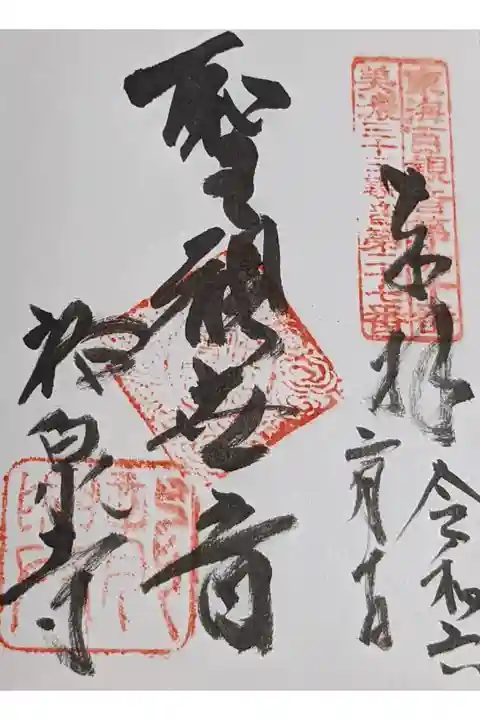 東海百観音第
美濃三十三観音第二七番
奉拝
令和六
聖観世音
祐泉寺